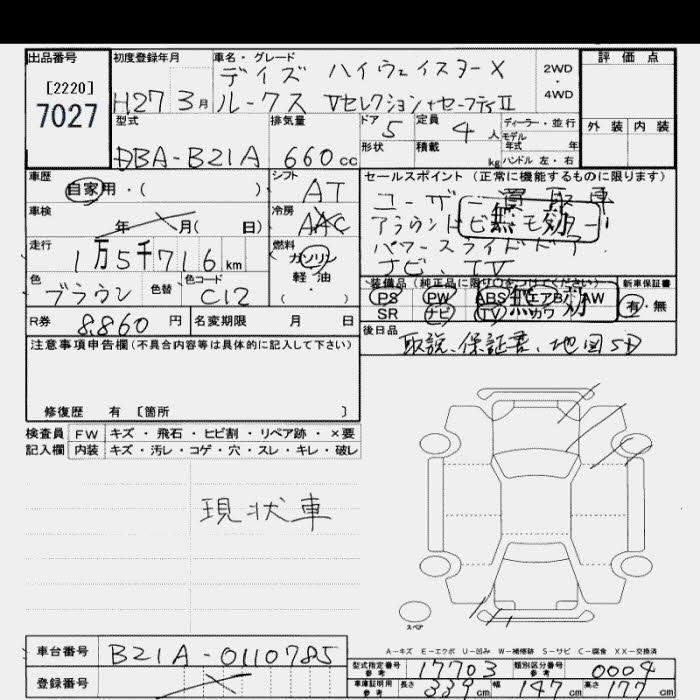 出品番号
[2220]
7027
初度登録年月
H27 3月
車名・グレード
デイズ ハイウェイスターX
ルークス Vセレクション+セーフティII
2WD
・
4WD
評価点
外装 内装
型式
DBA-B21A
排気量
660cc
ドア 5
定員 4人
形状
積載 kg
ディーラー・並行
モデル
年式 年
ハンドル 左・右
車歴
自家用・( )
シフト
AT
車検
年 月( 日)
冷房
AAC
走行
1万5千716km
燃料
ガソリン
軽油
( )
色
ブラウン
色替
色コード
C12
R券 8,860円
名変期限 月 日
セールスポイント(正常に機能するものに限ります)
ユーザー買取車
アラウンドビューモニター
無効
パワースライドドア
ナビ、TV
装備品(純正品に限り○をつけてください)
PS PW ABS エアB AW
SR ナビ TV カワ
無効
新車保証書
有・無
後日品
取説、保証書、地図SD
注意事項申告欄(不具合内容等は具体的に記入して下さい)
修復歴 有 [箇所 ]
検査員 FW キズ・飛石・ヒビ割・リペア跡・×要
記入欄 内装 キズ・汚レ・コゲ・穴・スレ・キレ・破レ
現状車
スペア
A-キズ E-エクボ U-凹み W-補修跡 S-サビ C-腐食 XX-交換済
車台番号 B21A-0110785
登録番号
型式指定番号 参考 17703
類別区分番号 参考 0004
車庫証明用 参考 長さ 339cm 幅 147cm 高さ 177cm